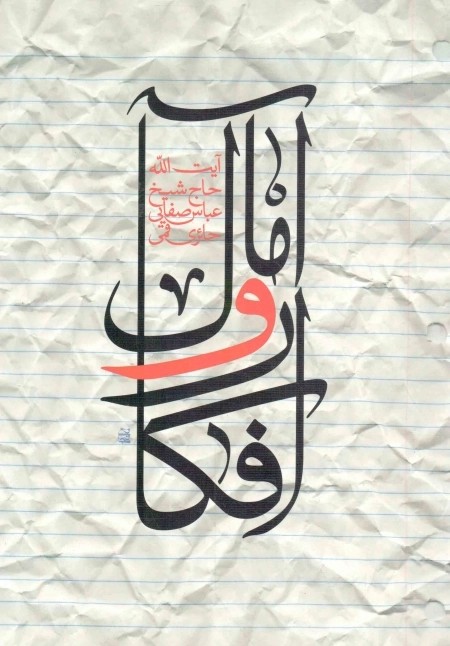 آمال
و
افکار
آیت الله
حاج شیخ
عباس صفایی
حائری قمی